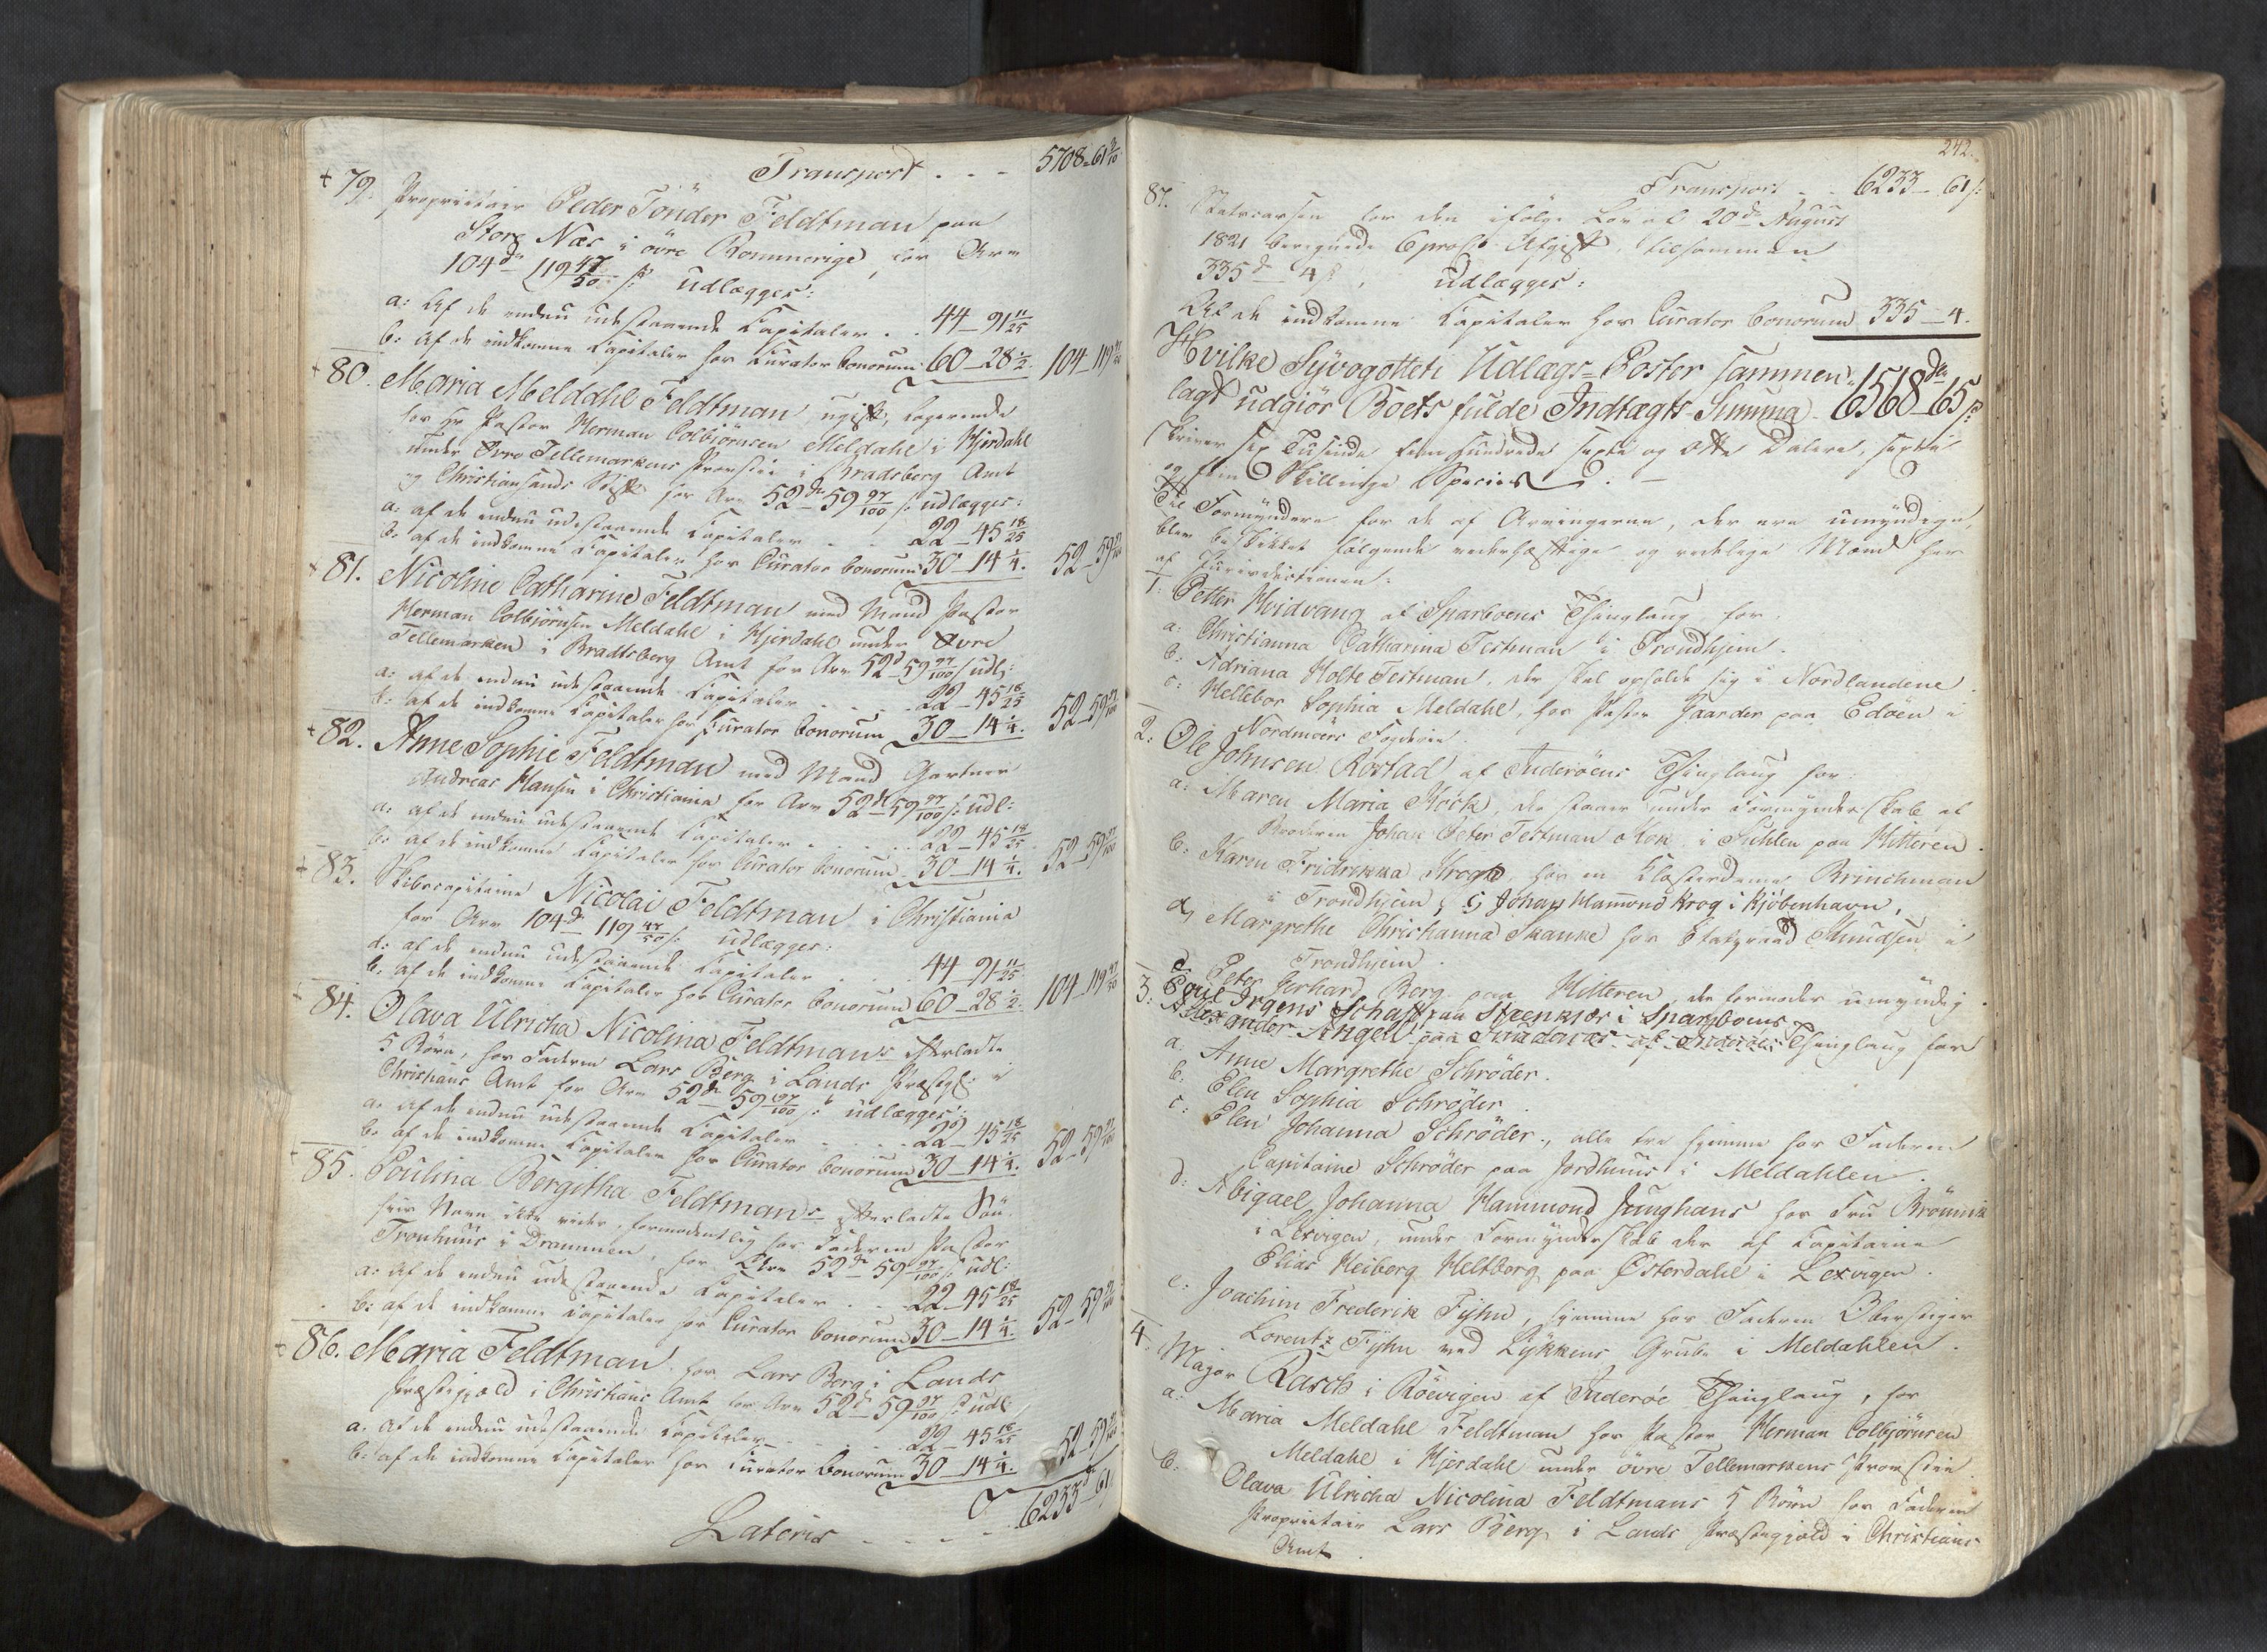 Transport . . . 5708 - 61 9/10
+ 79. Proprietair Peder Tönder Feldtman paa
Store Næs i övre Rommerige, for Arv
104 d 119 47/50 s: udlægges:
a: Af de endnu udestaaende Capitaler . . 44 - 91 11/25
b: af de indkomne Capitaler hos Curator bonorum 60 - 28 1/2. 104 - 119 47/50
+ 80. Maria Meldahl Feldtman ugift, logerende
hos Hr Pastor Herman Colbjörnsen Meldahl i Hjerdahl
under Övre Tellemarkens Provstie i Bradsberg Amt
og Christiansands Stift for Arv 52 d 59 97/100 s: udlægges:
a: af de endnu udestaaende Capitaler . . 22 - 45 18/25
b: af de indkomne Capitaler hos Curator bonorum 30 - 14 1/4. 52 - 59 97/100
+ 81. Nicoline Catharine Feldtman med Mand Pastor
Herman Colbjörnsen Meldahl i Hjerdahl under Övre
Tellemarken i Bradtsberg Amt for Arv 52 d 59 97/100 s udl:
a: af de endnu udestaaende Capitaler . . . 22 - 45 18/25
b: af de indkomne Capitaler hos Curator bonorum 30 - 14 1/4. 52 - 59 97/100
+ 82. Anne Sophie Feldtman med Mand Gartner
Andreas Hansen i Christiania for Arv 52 d 59 97/100 s: udl:
a: af de endnu udestaaende Capitaler . . . 22 - 45 18/25
b: af de indkomne Capitaler hos Curator bonorum 30 - 14 1/4. 52 - 59 97/100
+ 83. Skibscapitaine Nicolai Feldtman i Christiania
for Arv 104 d 119 47/50 s: udlægges:
a: af de endnu udestaaende Capitaler . . 44 - 91 11/25
b: af de indkomne Capitaler hos Curator bonorum 60 - 28 1/2. 104 - 119 47/50
+ 84. Olava Ulricha Nicolina Feldtmans efterladte
5 Börn, hos Faderen Lars Berg i Lands Præstegj: i
Christians Amt for Arv 52 d 59 97/100 s: udlægges:
a: af de endnu udestaaende Capitaler . . . 22 - 45 18/25
b: af de indkomne Capitaler hos Curator bonorum 30 - 14 1/4. 52 - 59 97/100
85. Poulina Bergitha Feldtmans efterladte Sön
hvis Navn ikke vides, formodentlig hos Faderen Pastor
Tronhuus i Drammen, for Arv 52 d 59 97/100 s: udl:
a: af de endnu udestaaende Capitaler . . 22 - 45 18/25
b: af de indkomne Capitaler hos Curator bonorum 30 - 14 1/4. 52 - 59 97/100
+ 86. Maria Feldtman hos Lars Berg i Lands
Præstegjæld i Christians Amt for Arv 52 d 59 97/100 s: udl:
a. af de endnu udestaaende Capitaler . . . 22 - 45 18/25
b: af de indkomne Capitaler hos Curator bonorum 30 - 14 1/4. 52 - 59 97/100
Lateris . . . . 6233 d 61
242.
Transport . . 6233 - 61 s:
87. Statscassen for den ifölge Lov af 20de August
1821 beregnede 6 proCt Afgift, tilsammen
335 d 4 s, udlægges:
Af de indkomne Capitaler hos Curator bonorum 335 - 4.
Hvilke Syvogotteti Udlægs-Poster sammen-
lagt udgiör Boets fulde Indtægts-Summa 6568 d 65 s:
skriver sex Tusinde fem hundrede sexti og otte Daler, sexti
og fem Skillinge Species
Til Formyndere for de af Arvingerne, der ere umyndige,
blev beskikket fölgende vederhæftige og redelige Mænd her
af Jurisdictionen:
1: Petter Hvidvang af Sparboens Thinglaug for.
a: Christianna Catharina Testman i Trondhjem.
b: Adriana Holte Testman, der skal opholde sig i Nordlandene.
c: Hellebor Sophia Meldahl, hos Pastor Jaarder paa Edöen i
Nordmöers Fogderie.
2: Ole Johnsen Rostad af Inderöens Thinglaug for:
a: Maren Maria Kock, der staaer under Formynderskab af
Broderen Johan Peter Testman Kok i Suhlen paa Hitteren.
b: Karen Fridrikka Krogh, hos en Klosterdame Brinchman
i Trondhjem; c) Johan Hammond Krog i Kjöbenhavn,
d, Margrethe Christianna Skanke hos Etatsraad Knudsen i
Trondhjem.
e Peter Gerhard Berg paa Hitteren, der formodes umyndig.
3: Poul Irgens Schaft paa Steenkjær i Sparboens
Alexander Angell paa Sundnæs af Inderöens Thinglaug for
a: Anne Margrethe Schröder.
b: Elen Sophia Schröder.
c: Elen Johanna Schröder, alle tre hjemme hos Faderen
Capitaine Schröder paa Jordhuus i Meldahlen.
d: Abigael Johanna Hammond Junghans hos Fru Brönnik
i Lexvigen, under Formynderskab der af Capitaine
Elias Heiberg Heltborg paa Österdahl i Lexvigen.
e: Joachim Frederik Fyhn, hjemme hos Faderen Oberstiger
Lorentz Fyhn ved Lykkens Grube i Meldahlen.
4. Major Rasch i Röevigen af Inderöe Thinglaug, for
a: Maria Meldahl Feldtman hos Pastor Herman Colbjörnsen
Meldahl i Hjerdahl under övre Tellemarkens Provstie.
b: Olava Ulricha Nicolina Feldtmans 5 Börn hos Faderen
Proprietair Lars Berg i Lands Præstegjæld i Christians
Amt.